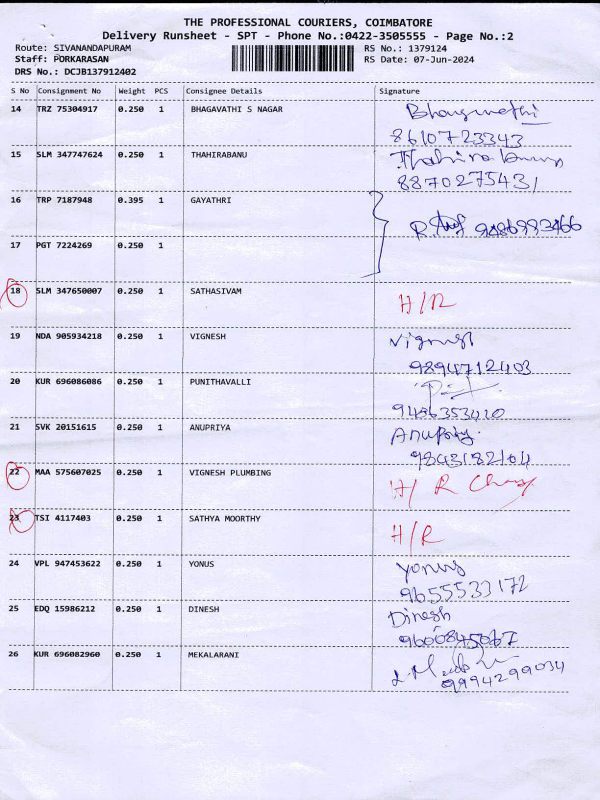 THE PROFESSIONAL COURIERS, COIMBATORE
Delivery Runsheet - SPT - Phone No.:0422-3505555 - Page No.:2
Route: SIVANANDAPURAM RS No.: 1379124
Staff: PORKARASAN RS Date: 07-Jun-2024
DRS No.: DCJB137912402
S No Consignment No Weight PCS Consignee Details Signature
14 TRZ 75304917 0.250 1 BHAGAVATHI S NAGAR Bhagavathi
8610723343
15 SLM 347747624 0.250 1 THAHIRABANU
8870275431
16 TRP 7187948 0.395 1 GAYATHRI
17 PGT 7224269 0.250 1
18 SLM 347650007 0.250 1 SATHASIVAM H/R
19 NDA 905934218 0.250 1 VIGNESH Vignesh
9894712403
20 KUR 696086086 0.250 1 PUNITHAVALLI
9486353410
21 SVK 20151615 0.250 1 ANUPRIYA Anupriya
9843182104
22 MAA 575607025 0.250 1 VIGNESH PLUMBING H/R
23 TSI 4117403 0.250 1 SATHYA MOORTHY H/R
24 VPL 947453622 0.250 1 YONUS Yonus
9655533172
25 EDQ 15986212 0.250 1 DINESH Dinesh
26 KUR 696082960 0.250 1 MEKALARANI
9994299034